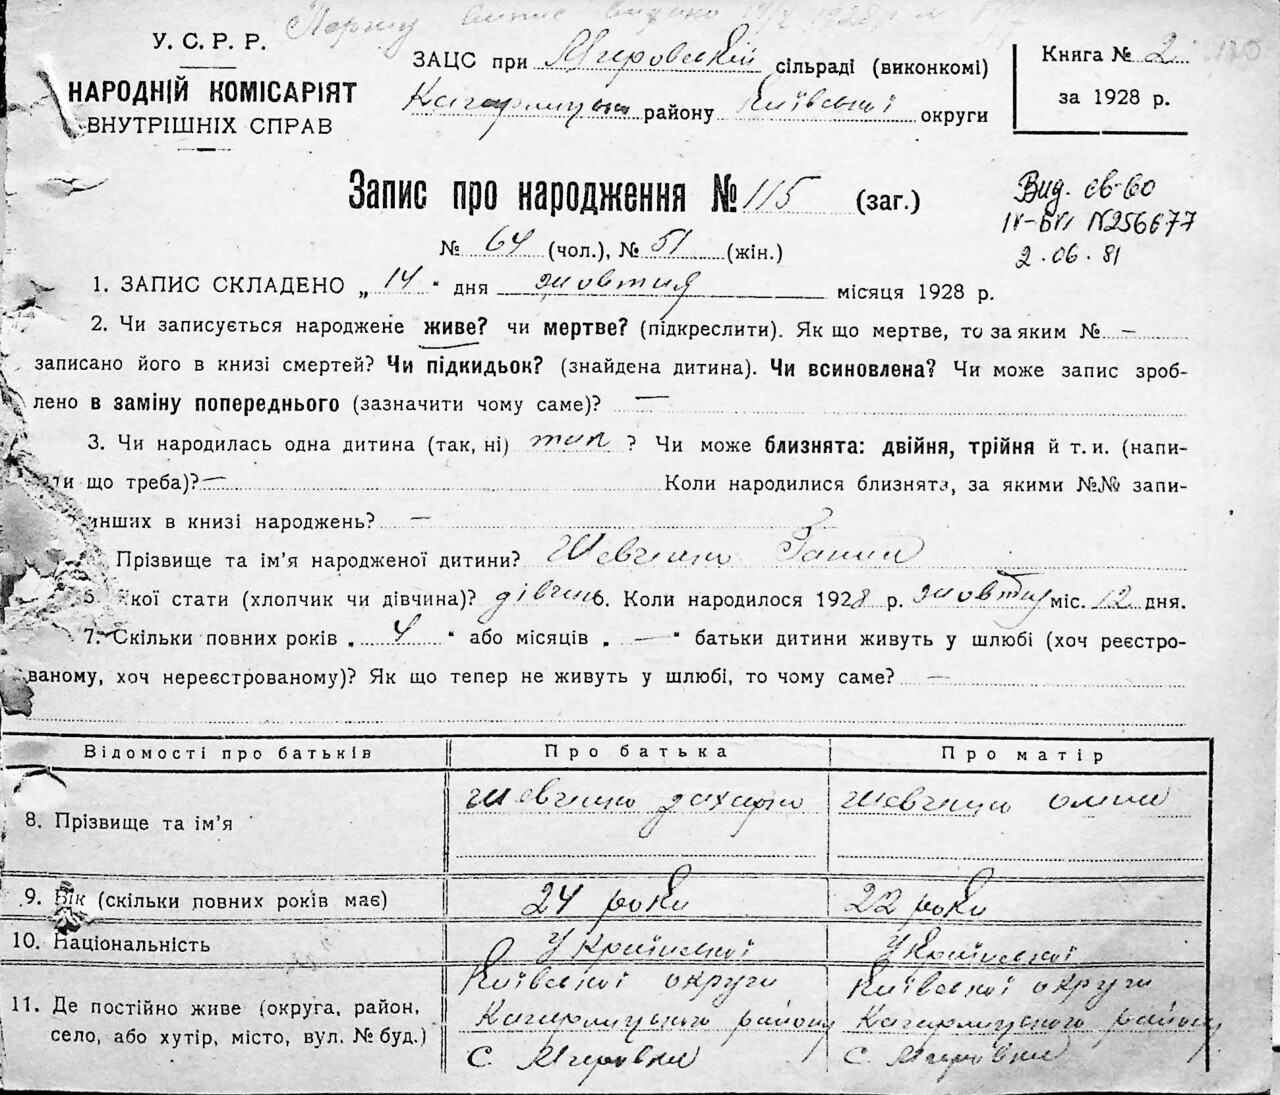 Першу випис видано 14/X 1928 р.
У. С. Р. Р.
НАРОДНІЙ КОМІСАРІЯТ
ВНУТРІШНІХ СПРАВ
ЗАЦС при Ячировській сільраді (виконкомі)
Кагарлицьки району Київської округи
Книга № 2
за 1928 р.
Запис про народження № 115 (заг.)
№ 64 (чол.), № 51 (жін.)
Вид. св-во
IV-БК N256677
2.06.81
1. ЗАПИС СКЛАДЕНО „ 14 " дня жовтня місяця 1928 р.
2. Чи записується народжене живе? чи мертве? (підкреслити). Як що мертве, то за яким № —
записано його в книзі смертей? Чи підкидьок? (знайдена дитина). Чи всиновлена? Чи може запис зроб-
лено в заміну попереднього (зазначити чому саме)? —
3. Чи народилась одна дитина (так, ні) так ? Чи може близнята: двійня, трійня й т. и. (напи-
ти що треба)? — Коли народилися близнята, за якими №№ запи-
инших в книзі народжень? —
Прізвище та ім'я народженої дитини? Шевченко Ганна
5. Якої стати (хлопчик чи дівчина)? дівчин 6. Коли народилося 1928 р. жовтня міс. 12 дня.
7. Скільки повних років „ 4 " або місяців „ — " батьки дитини живуть у шлюбі (хоч реєстро-
ваному, хоч нереєстрованому)? Як що тепер не живуть у шлюбі, то чому саме? —
Відомості про батьків Про батька Про матір
8. Прізвище та ім'я Шевченко Захарко Шевченко Олена
9. Вік (скільки повних років має) 24 роки 22 роки
10. Національність Української Української
11. Де постійно живе (округа, район, Київської округи Київської округи
село, або хутір, місто, вул. № буд.) Кагарлицького району Кагарлицького району
с. Ячировки с. Ячировки